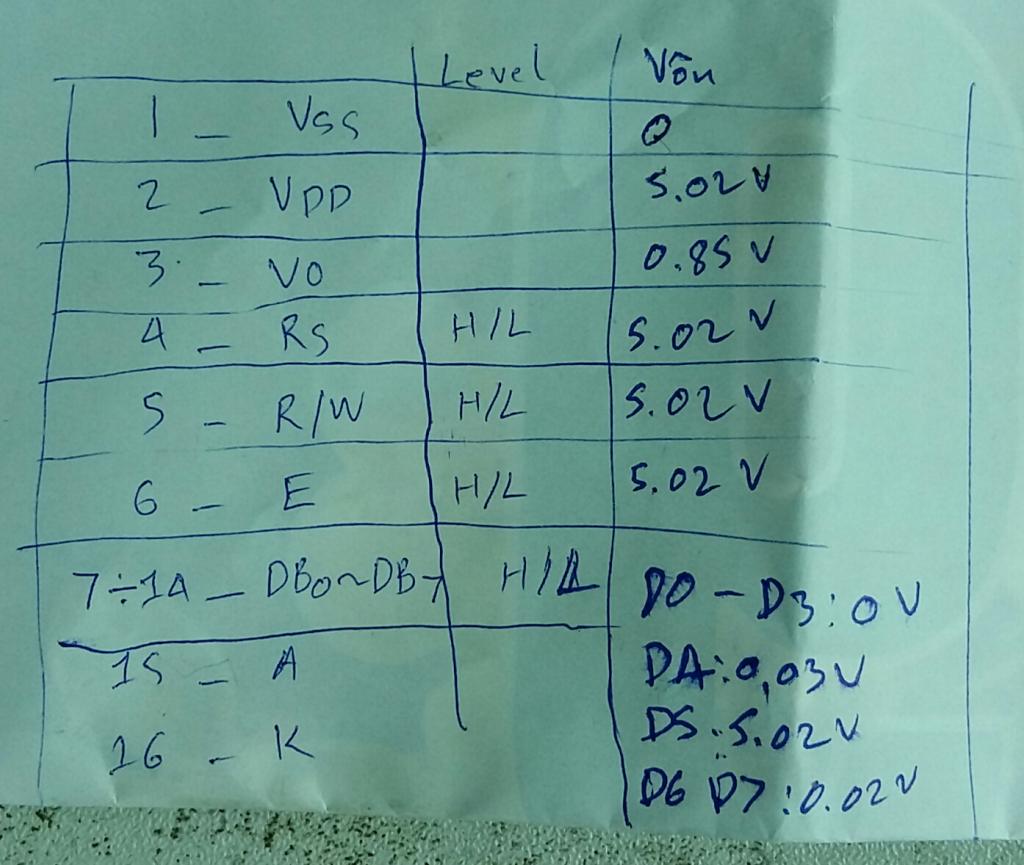 Level Vôn
1 - Vss 0
2 - VDD 5.02 V
3 - VO 0.85 V
4 - RS H/L 5.02 V
5 - R/W H/L 5.02 V
6 - E H/L 5.02 V
7÷14 - DB0~DB7 H/L D0 - D3: 0 V
15 - A D4: 0,03 V
D5: 5.02 V
16 - K
D6 D7: 0.02 V